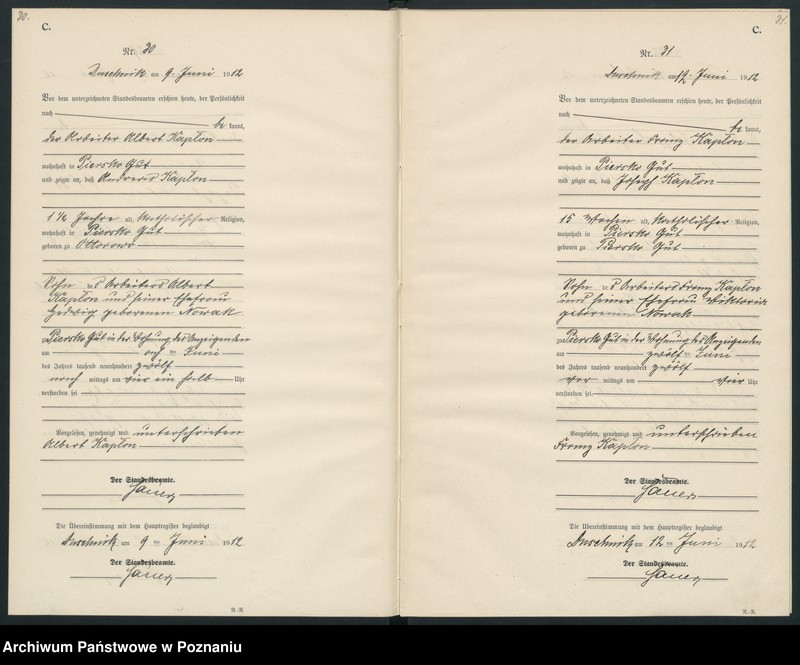 30.
C.
Nr. 30
Duschnik am 9. Juni 1912
Vor dem unterzeichneten Standesbeamten erschien heute, der Persönlichkeit
nach
be kannt,
der Arbeiter Albert Kapłon
wohnhaft in Piersko Gut
und zeigte an, daß Andreas Kapłon
1 ½ Jahre alt, katholischer Religion,
wohnhaft in Piersko Gut
geboren zu Ottorowo
Sohn des Arbeiters Albert
Kapłon und seiner Ehefrau
Hedwig geborenen Nowak
zu Piersko Gut in der Wohnung des Anzeigenden
am ten Juni
des Jahres tausend neunhundert zwölf
nach mittags um vier ein halb Uhr
verstorben sei
Vorgelesen, genehmigt und unterschrieben
Albert Kapłon
Der Standesbeamte.
Die Übereinstimmung mit dem Hauptregister beglaubigt
Duschnik am 9 ten Juni 1912
Der Standesbeamte.
R.-R.
31.
C.
Nr. 31
Duschnik am 12. Juni 1912
Vor dem unterzeichneten Standesbeamten erschien heute, der Persönlichkeit
nach
be kannt,
der Arbeiter Franz Kapłon
wohnhaft in Piersko Gut
und zeigte an, daß Joseph Kapłon
15 Wochen alt, katholischer Religion,
wohnhaft in Piersko Gut
geboren zu Piersko Gut
Sohn des Arbeiters Franz Kapłon
und seiner Ehefrau Wiktoria
geborenen Nowak
zu Piersko Gut in der Wohnung des Anzeigenden
am zwölf ten Juni
des Jahres tausend neunhundert zwölf
vor mittags um vier Uhr
verstorben sei
Vorgelesen, genehmigt und unterschrieben
Franz Kapłon
Der Standesbeamte.
Die Übereinstimmung mit dem Hauptregister beglaubigt
Duschnik am 12 ten Juni 1912
Der Standesbeamte.
R.-R.
Archiwum Państwowe w Poznaniu